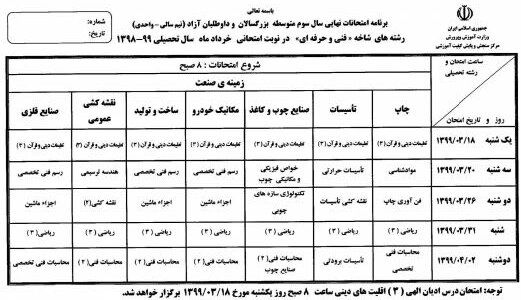 باسمه تعالی
جمهوری اسلامی ایران
وزارت آموزش و پرورش
مرکز سنجش و پایش کیفیت آموزشی
برنامه امتحانات نهایی سال سوم متوسطه بزرگسالان و داوطلبان آزاد (نیم سالی - واحدی)
رشته های شاخه «فنی و حرفه ای» در نوبت امتحانی خرداد ماه سال تحصیلی ۹۹-۱۳۹۸
شماره:
تاریخ:
ساعت امتحان و رشته تحصیلی
روز و تاریخ امتحان
شروع امتحانات: ۸ صبح
زمینه ی صنعت
چاپ تأسیسات صنایع چوب و کاغذ مکانیک خودرو ساخت و تولید نقشه کشی عمومی صنایع فلزی
یک شنبه ۱۳۹۹/۰۳/۱۸ تعلیمات دینی و قرآن (۳) تعلیمات دینی و قرآن (۳) تعلیمات دینی و قرآن (۳) تعلیمات دینی و قرآن (۳) تعلیمات دینی و قرآن (۳) تعلیمات دینی و قرآن (۳) تعلیمات دینی و قرآن (۳)
سه شنبه ۱۳۹۹/۰۳/۲۰ موادشناسی تأسیسات حرارتی خواص فیزیکی و مکانیکی چوب رسم فنی تخصصی رسم فنی تخصصی هندسه ترسیمی رسم فنی تخصصی
دو شنبه ۱۳۹۹/۰۳/۲۶ فن آوری چاپ نقشه کشی تأسیسات تکنولوژی سازه های چوبی اجزاء ماشین اجزاء ماشین نقشه کشی (۲) اجزاء ماشین
شنبه ۱۳۹۹/۰۳/۳۱ ریاضی (۳) ریاضی (۳) ریاضی (۳) ریاضی (۳) ریاضی (۳) ریاضی (۳) ریاضی (۳)
دوشنبه ۱۳۹۹/۰۴/۰۲ محاسبات فنی تخصصی تأسیسات برودتی محاسبات فنی (۲) صنایع چوب محاسبات فنی (۲) محاسبات فنی (۲) محاسبات فنی (۲) محاسبات فنی تخصصی
توجه: امتحان درس ادیان الهی (۳) اقلیت های دینی ساعت ۸ صبح روز یکشنبه مورخ ۱۳۹۹/۰۳/۱۸ برگزار خواهد شد.